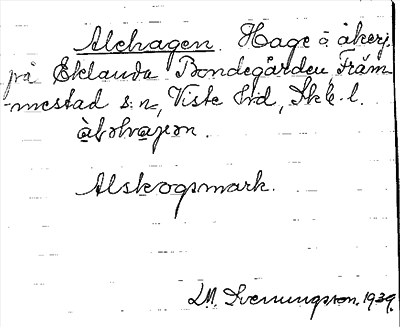 Alehagen. Hage o. åkerj.
på Eklanda Bondegården, Främ-
mestad s:n, Viste hd, Skb. l.
Alskogsmark.
LM. Svenungsson. 1939.